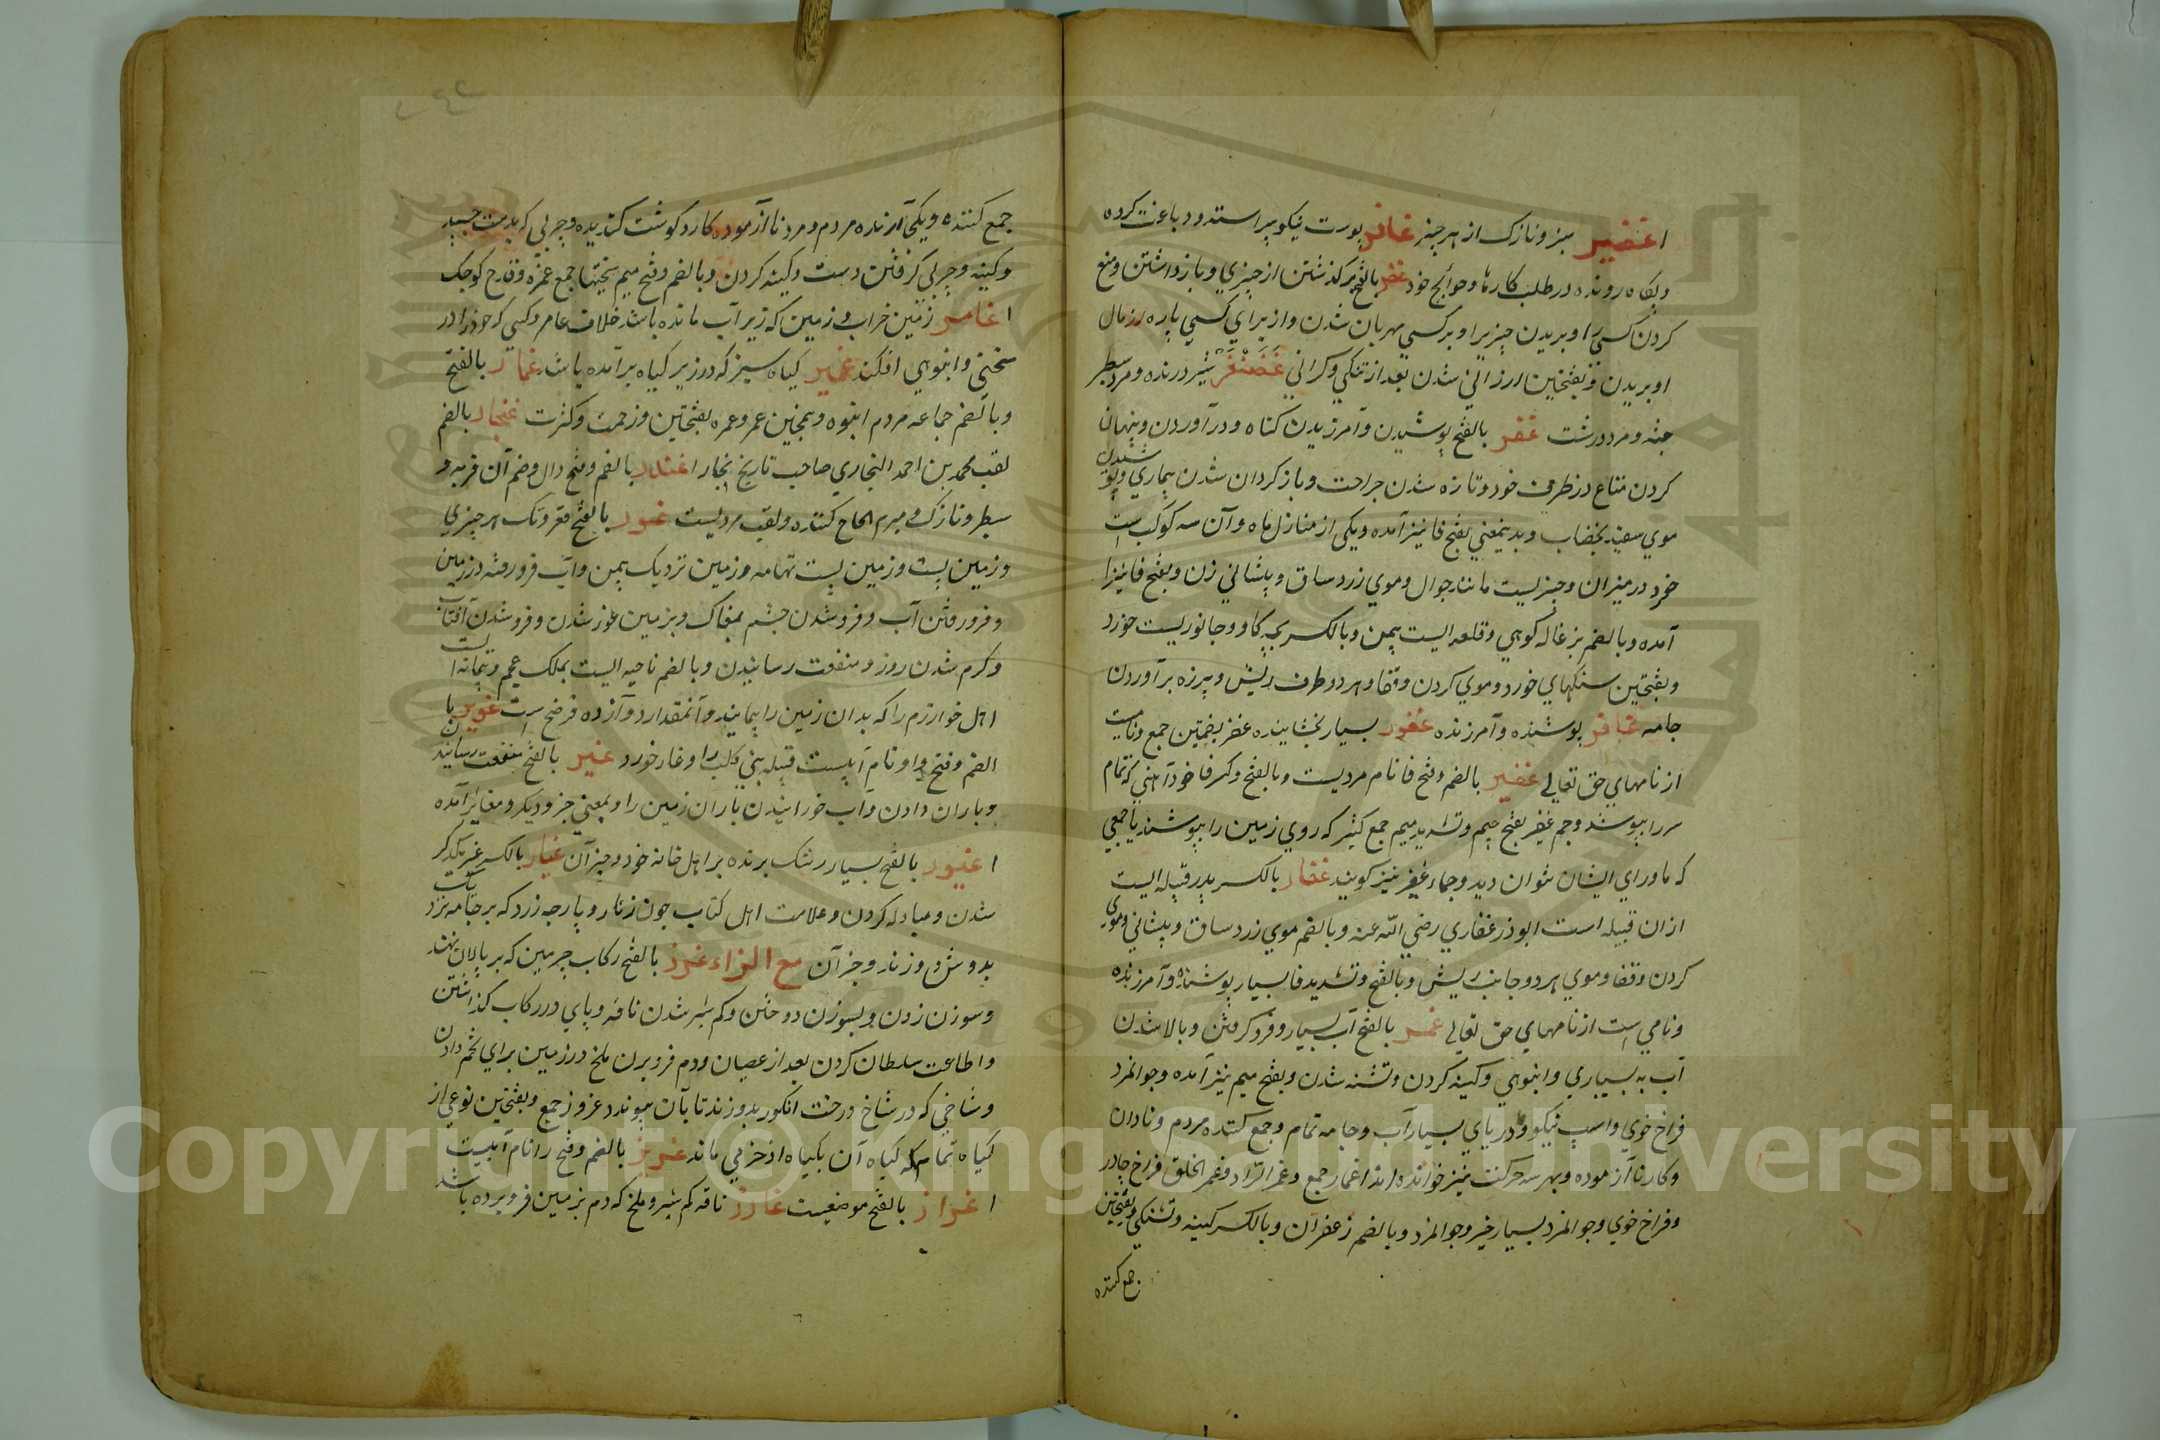 غضیر سبز و نازک از هر چیز غاضر پوست نیکو پیراسته و دباغت کرده
و پگاه رونده در طلب کارها و حوائج خود غضر بالفتح برگذشتن از چیزي و بازداشتن و منع
کردن کسی را و بریدن چیزیرا و بر کسي مهربان شدن و از براي کسي پاره از مال
او بریدن و بفتحتین ارزاني شدن بعد از تنگي و گراني غَضَنْفَرْ شیر درنده و مرد سطبر
جثه و مرد درشت غفر بالفتح پوشیدن و آمرزیدن گناه و در آوردن و پنهان
کردن متاع در ظرف خود و تازه شدن جراحت و باز گردان شدن بیماري و پوشیدن
موي سفید بخضاب و بدینمعني بفتح فا نیز آمده و یکی از منازل ماه و آن سه کوکب است
خرد در میزان و چیزیست مانند جوال و موي زرد ساق و پیشاني زن و بفتح فا نیز
آمده و بالضم بزغاله کوهي و قلعه ایست بیمن و بالکسر بچه گاو و جانوریست خورد
و بفتحتین سنگهاي خورد و موي گردن و قفا و هر دو طرف ریش و پرزه برآوردن
جامه غافر پوشنده و آمرزنده غفور بسیار بخشاینده غفر بضمتین جمع و نامیست
از نامهاي حق تعالی غفیر بالضم و فتح فا نام مردیست و بالفتح و کسر فا خود آهني که تمام
سر را بپوشد و جم غفیر بفتح جیم و تشدید میم جمع کثیر که روي زمین را بپوشند یا جمعي
که ماوراي ایشان نتوان دید و جماء غفیر نیز گویند غفار بالکسر پدر قبیله ایست
از ان قبیله است ابوذر غفاري رضي الله عنه و بالضم موي زرد ساق و پیشاني و موي
گردن و قفا و موي هر دو جانب ریش و بالفتح و تشدید فا بسیار پوشنده و آمرزنده
و نامي است از نامهاي حق تعالی غمر بالفتح آب بسیار و فرو گرفتن و بالا شدن
آب به بسیاري و انبوهي و کینه کردن و تشنه شدن و بفتح میم نیز آمده و جوانمرد
فراخ خوي و اسپ نیکو و دریاي بسیار آب و جامه تمام و جمع کننده مردم و نادان
و کار ناآزموده و بهر سه حرکت نیز خوانده اند اغمار جمع و غمر الرداء و غمر الخلق فراخ چادر
و فراخ خوي و جوانمرد بسیار خیر و جوانمرد و بالضم زعفران و بالکسر کینه و تشنگي و بفتحتین
جمع کننده
جمع کننده و یکی آرنده مردم و مرد ناآزموده کار و گوشت گندیده و چربي که بدست چسبد
و کینه و چربي گرفتن دست و کینه کردن و بالضم و فتح میم سختیها جمع غمره و قدح کوچک
غامر زمین خراب و زمین که زیر آب مانده باشد خلاف عامر و کسي که خود را در
سختي و انبوهي افکند غمیر گیاه سبز که در زیر گیاه برآمده باشد غمار بالفتح
و بالضم جماعه مردم انبوه و همچنین غمر و غمره بفتحتین و زحمت و کثرت غنجار بالضم
لقب محمد بن احمد البخاري صاحب تاریخ بخارا غندر بالضم و فتح دال و ضم آن فربه و
سطبر و نازک و مبرم الحاح کننده و لقب مردیست غور بالفتح قعر و تک هر چیزي
و زمین پست و زمین پست تهامه و زمین نزدیک بیمن و آب فرو رفته در زمین
و فرو رفتن آب و فرو شدن چشم بمغاک و بزمین غور شدن و فرو شدن آفتاب
و گرم شدن روز و منفعت رسانیدن و بالضم ناحیه ایست بملک عجم و پیمانه ایست
اهل خوارزم را که بدان زمین را پیمایند و آنمقدار دوازده فرسخ است غویر با
الضم و فتح واو نام آبیست قبیله بني کلب را و غار خورد غیر بالفتح منفعت رسانیدن
و باران دادن و آب خورانیدن باران زمین را و بمعني جز و دیگر و مغایر آمده
غیور بالفتح بسیار رشک برنده بر اهل خانه خود و جز آن غیار بالکسر غیر یکدیگر
شدن و مبادله کردن و علامت اهل کتاب چون زنار و پارچه زرد که بر جامه نزدیک
بدوش دوزند و جز آن مع الزاء غرز بالفتح رکاب چرمین که بر پالان نهند
و سوزن زدن و بسوزن دوختن و کم شیر شدن ناقه و پاي در رکاب گذاشتن
و اطاعت سلطان کردن بعد از عصیان و دم فرو بردن ملخ در زمین براي تخم دادن
و شاخي که در شاخ درخت انگور بدوزند تا بآن پیوندد غروز جمع و بفتحتین نوعی از
گیاه تمام که گیاه آن بگیاه اذخر مي ماند غریز بالضم و فتح را نام آبیست
غراز بالفتح موضعیست غارز ناقه کم شیر و ملخ که دم بزمین فرو برده باشد
Copyright © King Saud University